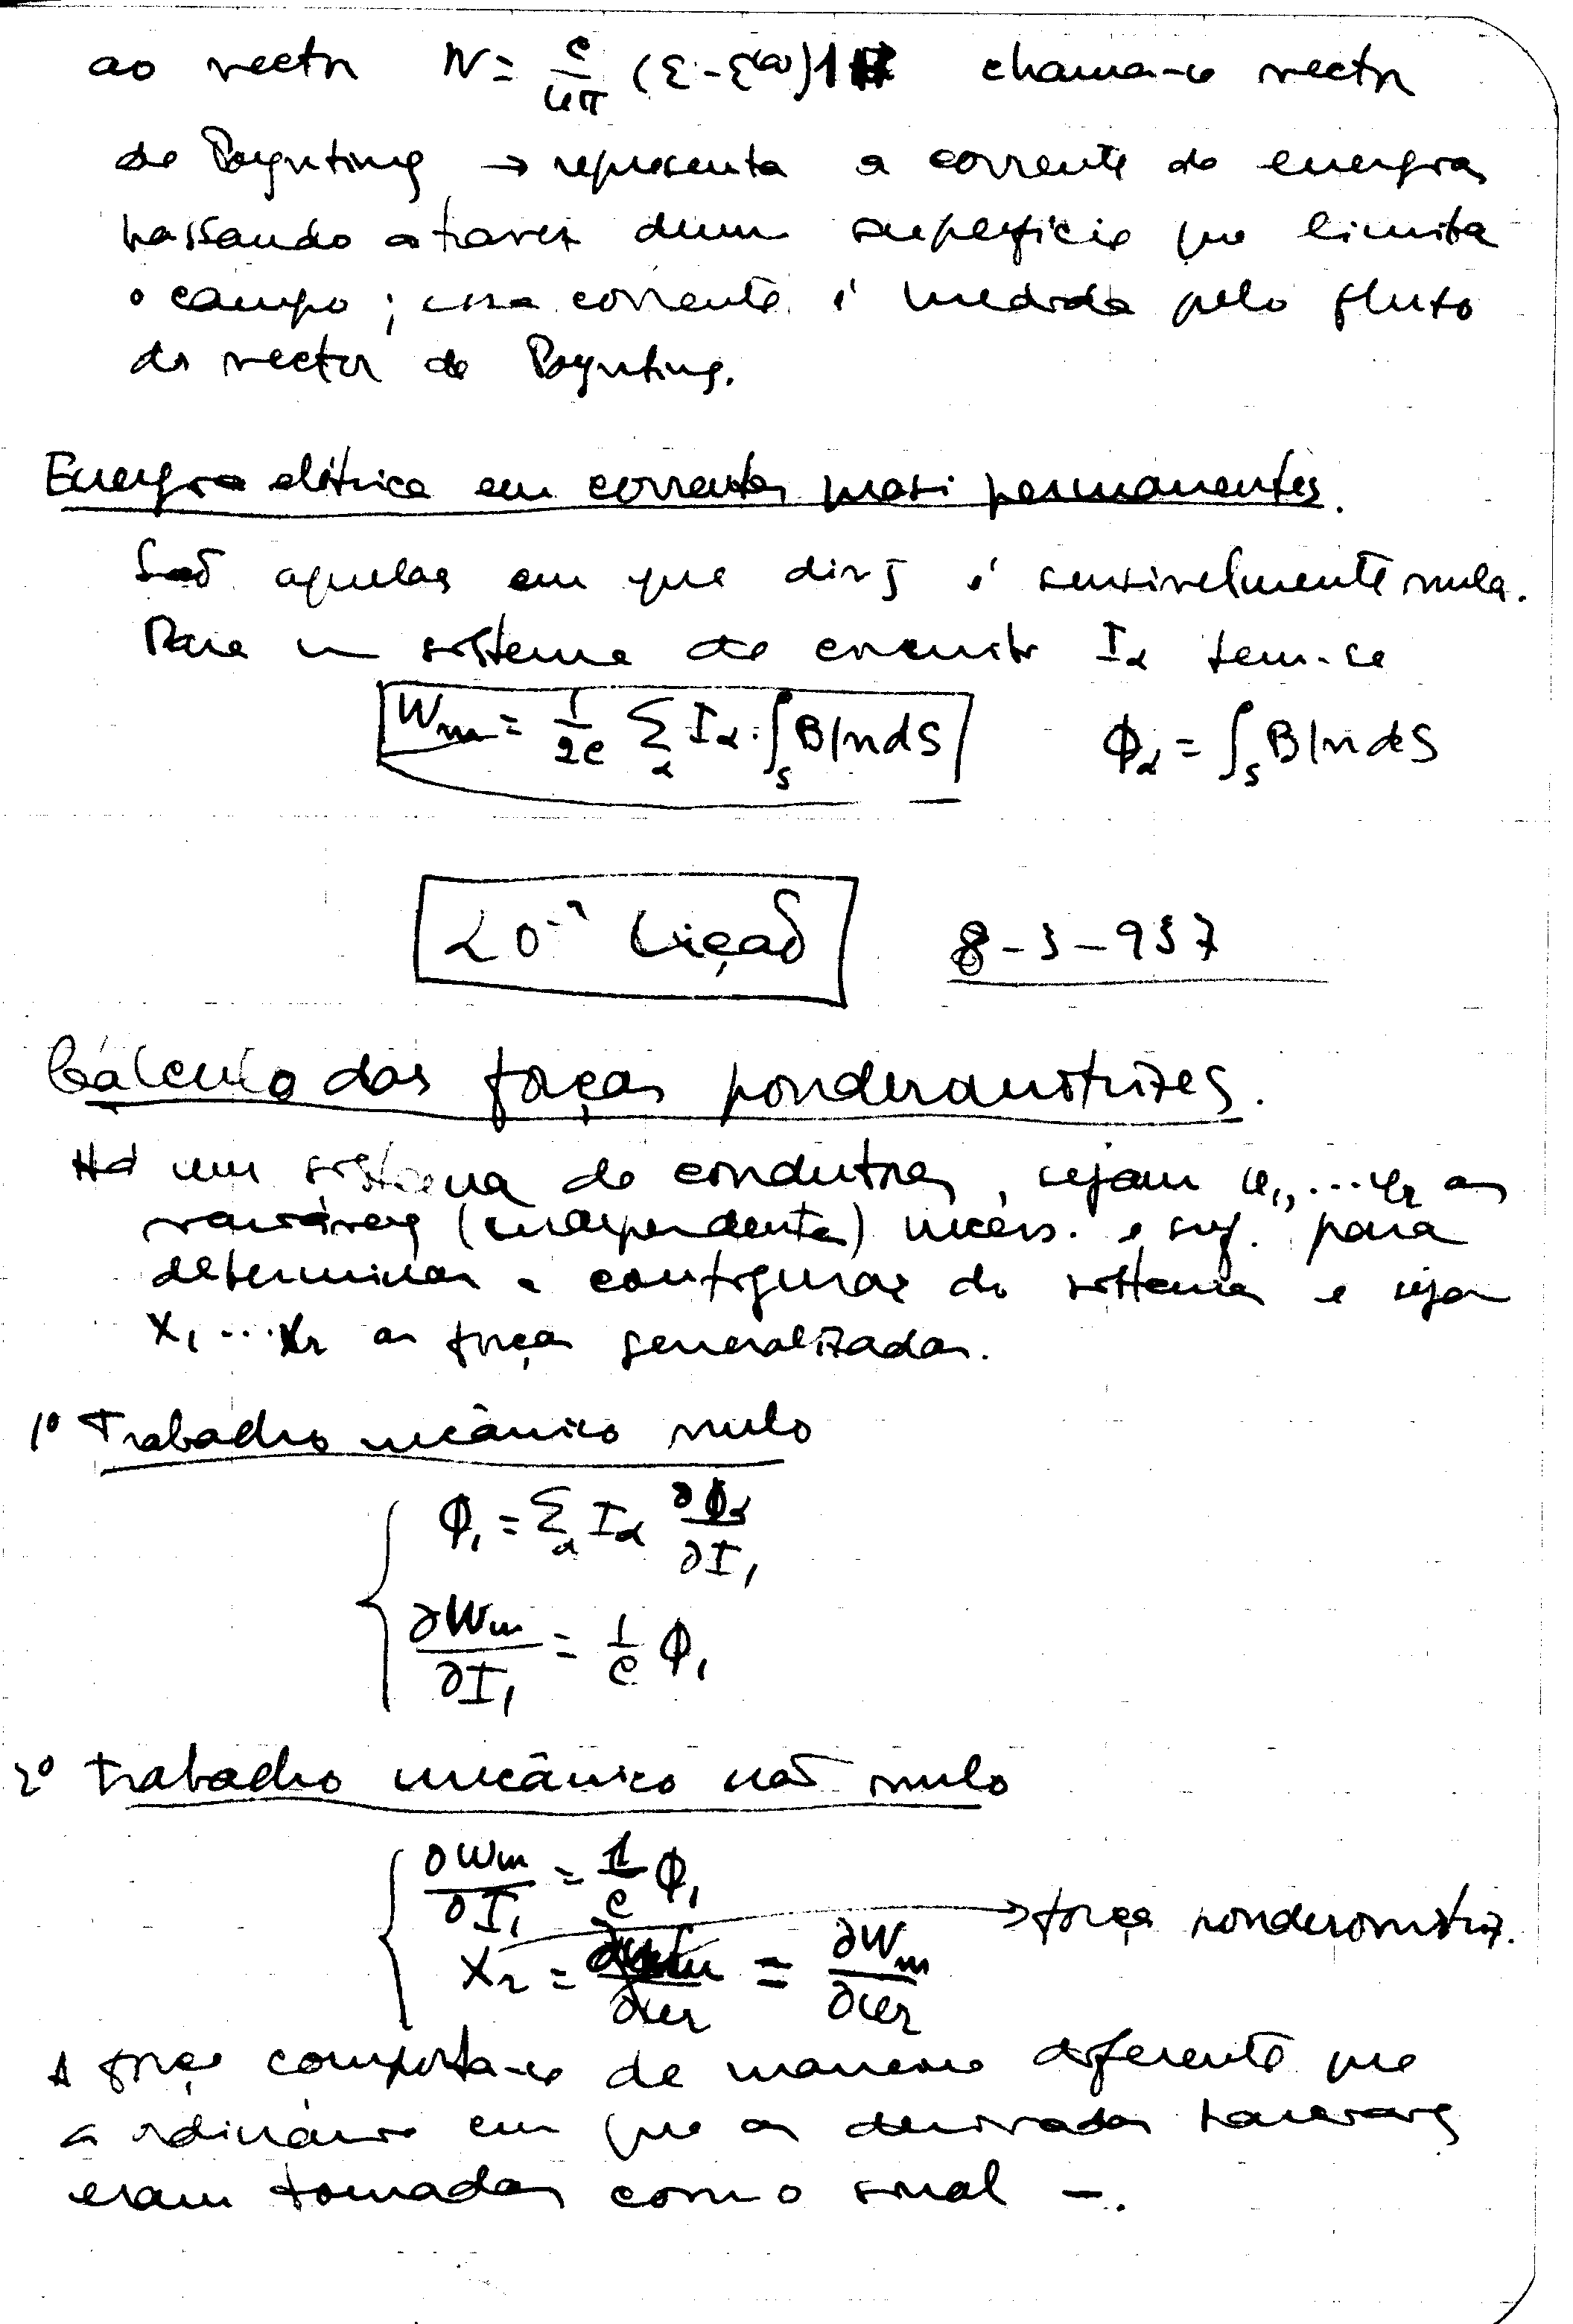 ao vector N = c/4π (ε - ε^(a)) ∧ H chama-se vector
de Poynting → representa a corrente de energia
passando através duma superficie que limita
o campo; essa corrente é medida pelo fluxo
do vector de Poynting.
Energia elétrica em correntes quasi permanentes.
São aquelas em que div j é sensivelmente nula.
Para um sistema de circuito Iα tem-se
Wm = 1/2c Σα Iα . ∫s B|n dS    Φα = ∫s B|n dS
20-ª Lição    8-3-937
Cálculo das forças ponderamotrizes.
Há um sistema de condutores, sejam φ1, ... φr as
variáveis (independentes) necess. e suf. para
determinar a configuraç do sistema e sejam
X1 ... Xr as forças generalizadas.
1º Trabalho mecânico nulo
Φ1 = Σα Iα ∂Φα/∂I1
∂Wm/∂I1 = 1/c Φ1
2º trabalho mecânico não nulo
∂Wm/∂I1 = 1/c Φ1
Xr = = ∂Wm/∂φr → força ponderomotriz.
A força comporta-se de maneira diferente que
a ordinária em que as derivadas parciais
eram tomadas com o sinal -.